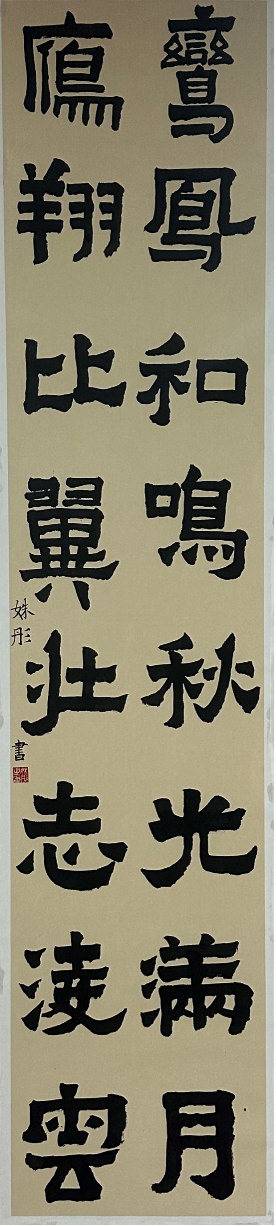 鸞鳳和鳴秋光滿月
鴈翔比翼壯志凌雲
姝彤書